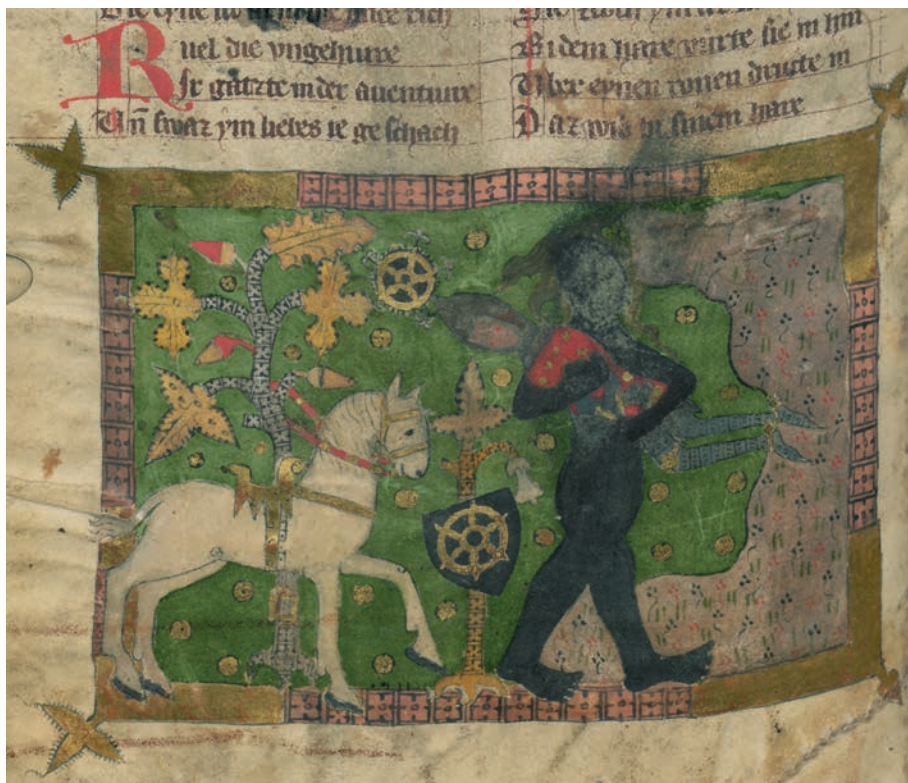 Ruel die vngehure
Ir gatzte in der auenture
Un̄ swaz ym liebes ie ge schach
Bi dem hare vurte sie in hin
Uber eynen ronen dructe in
Daz wib in sinem hare